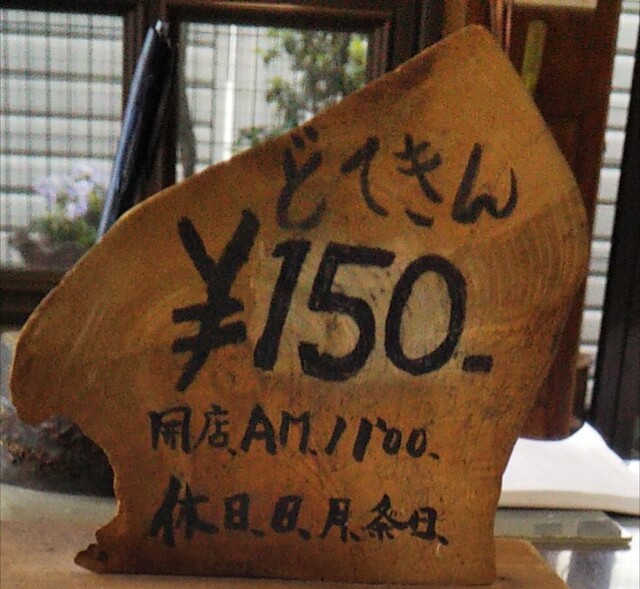 どてきん
¥150-
開店、AM、11:00、
休日、日、月、祭日、